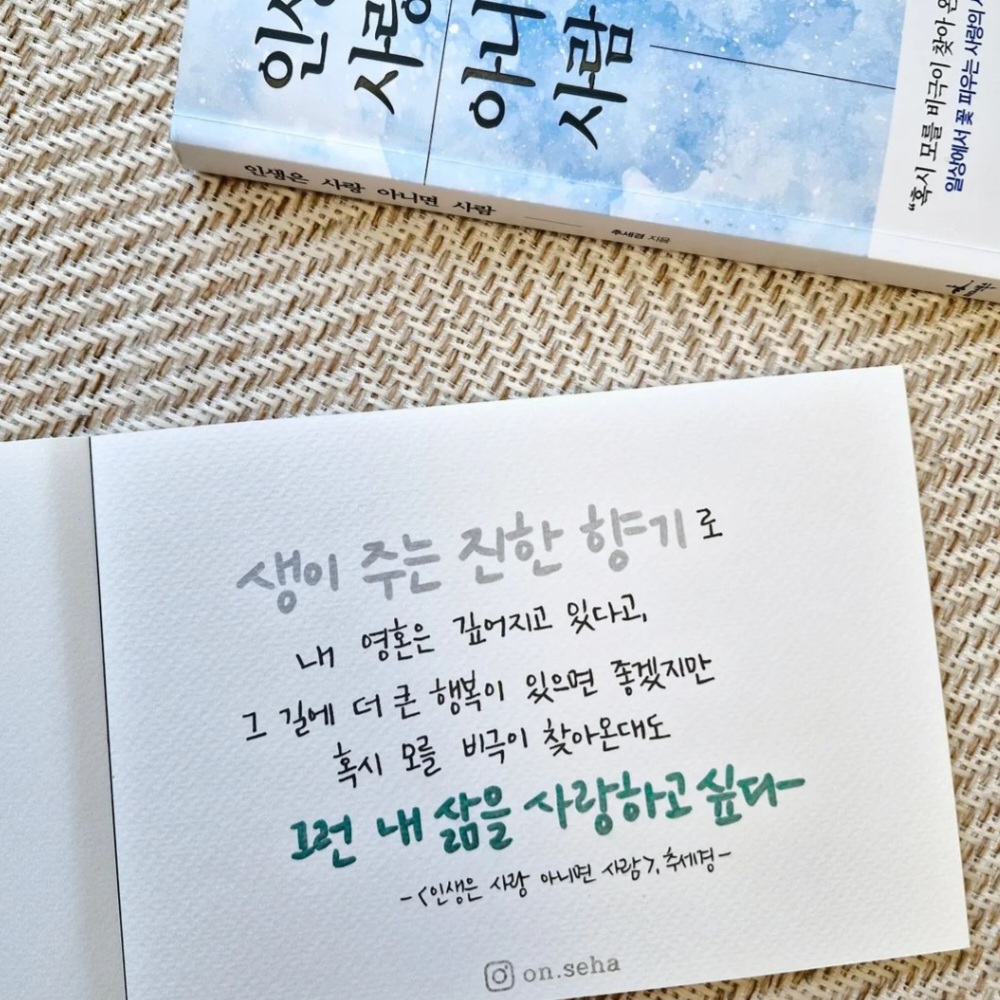 사랑
아니
사람
"혹시 모를 비극이 찾아
일상에서 꽃 피우는 사랑의
인생은 사랑 아니면 사람
추세경 지음
생이 주는 진한 향기로
내 영혼은 깊어지고 있다고,
그 길에 더 큰 행복이 있으면 좋겠지만
혹시 모를 비극이 찾아온대도
그런 내 삶을 사랑하고 싶다-
-<인생은 사랑 아니면 사람>, 추세경-
on.seha